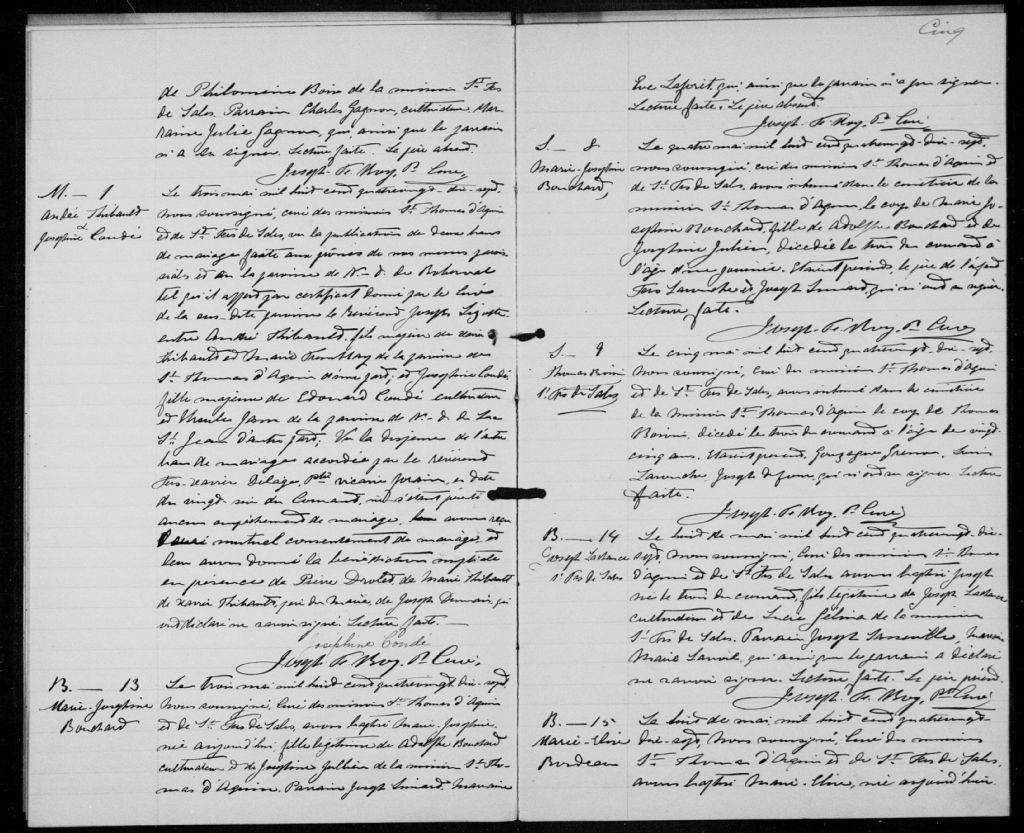 de Philomène Boin de la mission St Frs
de Sales. Parrain Charles Gagnon, cultivateur Mar-
raine Julie Gagnon, qui, ainsi que le parrain
n'a su signer. Lecture faite. Le père absent.
Joseph. Le Roy, Ptre Curé,
M. — 1
André Thibault
&
Joséphine Coudé
Le trois mai mil huit cent quatrevingt-dix-sept,
nous soussigné, curé des missions St Thomas d'Aquin
et de St Frs de Sales, vu la publication de deux bans
de mariage faite aux prônes de nos messes parois-
siales et en la paroisse de N.-D. de Roberval
tel qu'il appert par certificat donné par le Curé
de la sus-dite paroisse le Révérend Joseph Lizotte
entre André Thibault, fils majeur de
Thibault et Marie Tremblay de la paroisse de
St Thomas d'Aquin d'une part; et Joséphine Coudé
fille majeure de Edouard Coudé cultivateur
et de la paroisse de N.-D. de Lac
St Jean d'autre part; Vu la dispense de l'autre
ban de mariage accordée par le révérend
Frs-Xavier Delâge, Ptre vicaire forain, en date
du vingt six du Courant, ne s'étant
aucun empêchement de mariage, avons reçu
leur mutuel consentement de mariage et
leur avons donné la bénédiction nuptiale
en présence de Pierre Drolet, de Marie Thibault
de Xavier Thibault, père du marié, de Joseph qui
ont déclaré ne savoir signer. Lecture faite. —
Joséphine Coudé
Joseph Le Roy, Ptre Curé,
B. — 13
Marie-Joséphine
Bouchard
Le trois mai mil huit cent quatrevingt-dix-sept,
Nous soussigné, Curé des missions St Thomas d'Aquin
et de St Frs de Sales, avons baptisé Marie, Joséphine,
née aujourd'hui, fille légitime de Adolphe Bouchard
cultivateur et de Joséphine Jullien de la mission St Tho-
mas d'Aquin. Parrain Joseph Simard, Marraine
Cinq
Eve Laforêt, qui, ainsi que le parrain n'a pu signer.
Lecture faite. Le père absent.
Joseph. Le Roy, Ptre Curé,
S. — 8
Marie-Joséphine
Bouchard,
Le quatre mai mil huit cent quatrevingt-dix-sept,
nous soussigné, curé des missions St Thomas d'Aquin et
de St Frs de Sales, avons inhumé dans le cimetière de la
mission St Thomas d'Aquin, le corps de Marie Jo-
séphine Bouchard, fille de Adolphe Bouchard et de
Joséphine Julien, décédée le trois du courant à
l'âge d'une journée. Etaient présents, le père de l'enfant
Frs Larouche et Joseph Simard, qui n'ont su signer.
Lecture faite.
Joseph. Le Roy, Ptre Curé
S. — 9
Thomas Boivin
St Frs de Sales
Le cinq mai mil huit cent quatrevingt-dix-sept,
Nous soussigné, Curé des missions St Thomas d'Aquin
et de St Frs de Sales, avons inhumé dans le cimetière
de la mission St Thomas d'Aquin le corps de Thomas
Boivin, décédé le trois du courant à l'âge de vingt-
cinq ans. Etaient présents, Gonzague
Larouche, Joseph qui n'ont su signer Lecture
faite.
Joseph. Le Roy, Ptre Curé,
B. — 14
Joseph Lachance
St Frs de Sales
Le huit de mai mil huit cent quatrevingt-dix-
sept, Nous soussigné, Curé des missions St Thomas
d'Aquin et de St Frs de Sales avons baptisé Joseph
né le trois du courant, fils légitime de Joseph Lachance
cultivateur et de Lucie Gélina de la mission
St Frs de Sales. Parrain Joseph marraine
Marie qui ainsi que le parrain a déclaré
ne savoir signer. Lecture faite. Le père présent.
Joseph. Le Roy, Ptre Curé,
B. — 15
Marie-Elive
Bordeau
Le huit de mai mil huit cent quatrevingt-
dix-sept, Nous soussigné, Curé des missions
St Thomas d'Aquin et de St Frs de Sales,
avons baptisé Marie-Elive, née aujourd'hui